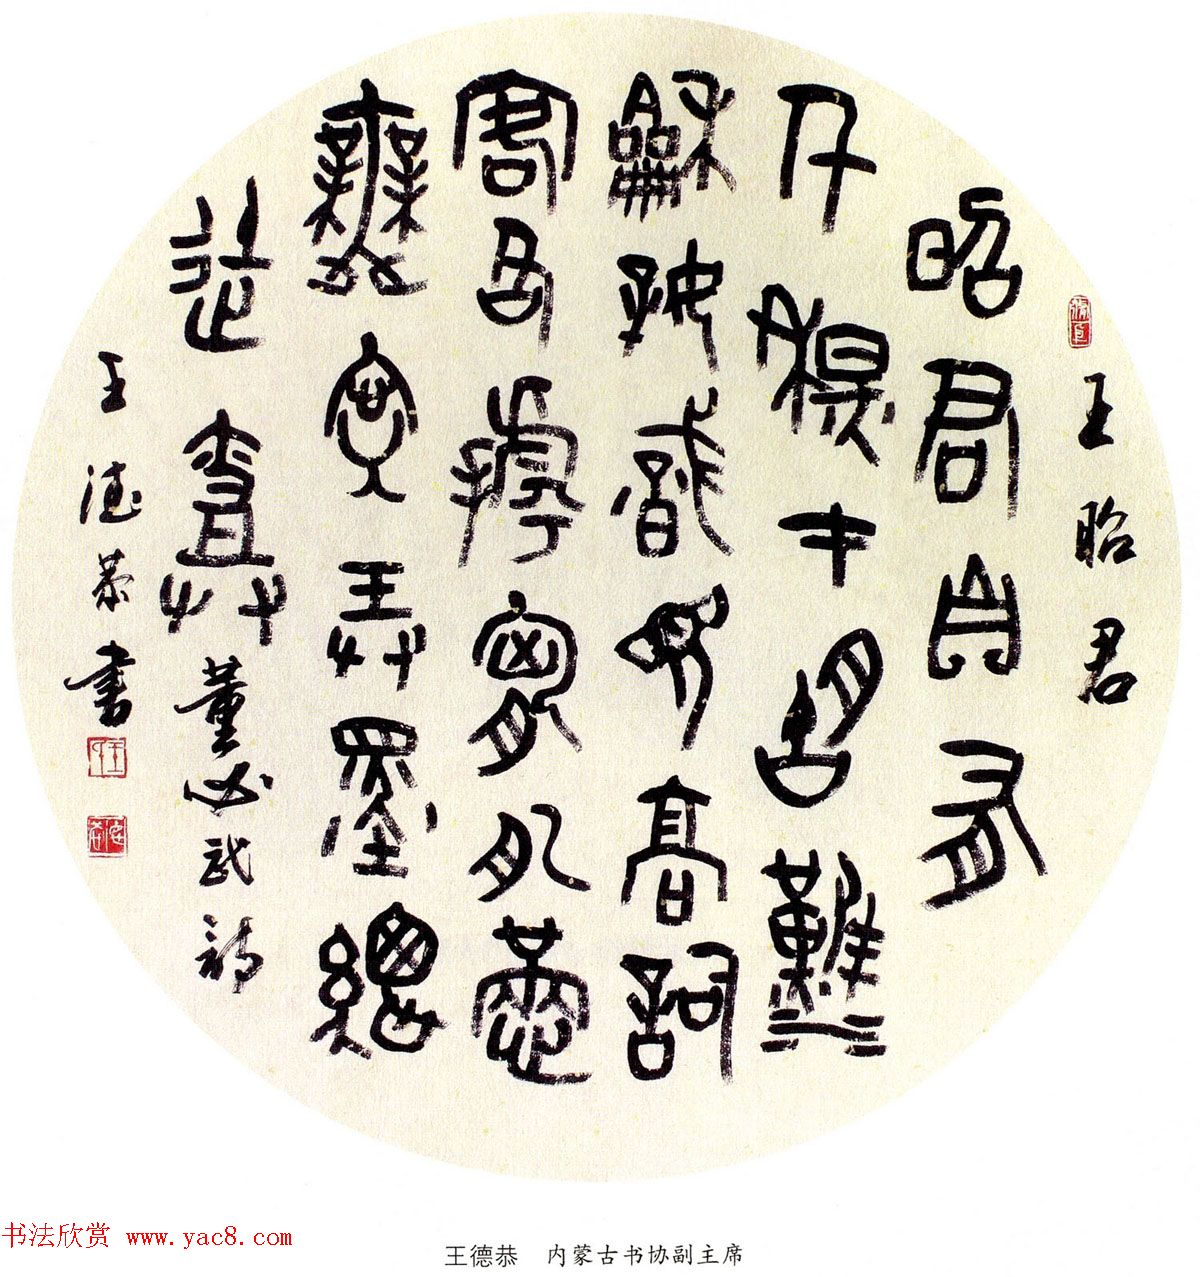 王昭君
昭君自有
千秋在胡漢
龢親識見高詞
客各攄胸臆懣
舞文弄墨總
徒勞 董必武詩
王德恭書
书法欣赏 www.yac8.com
王德恭 内蒙古书协副主席